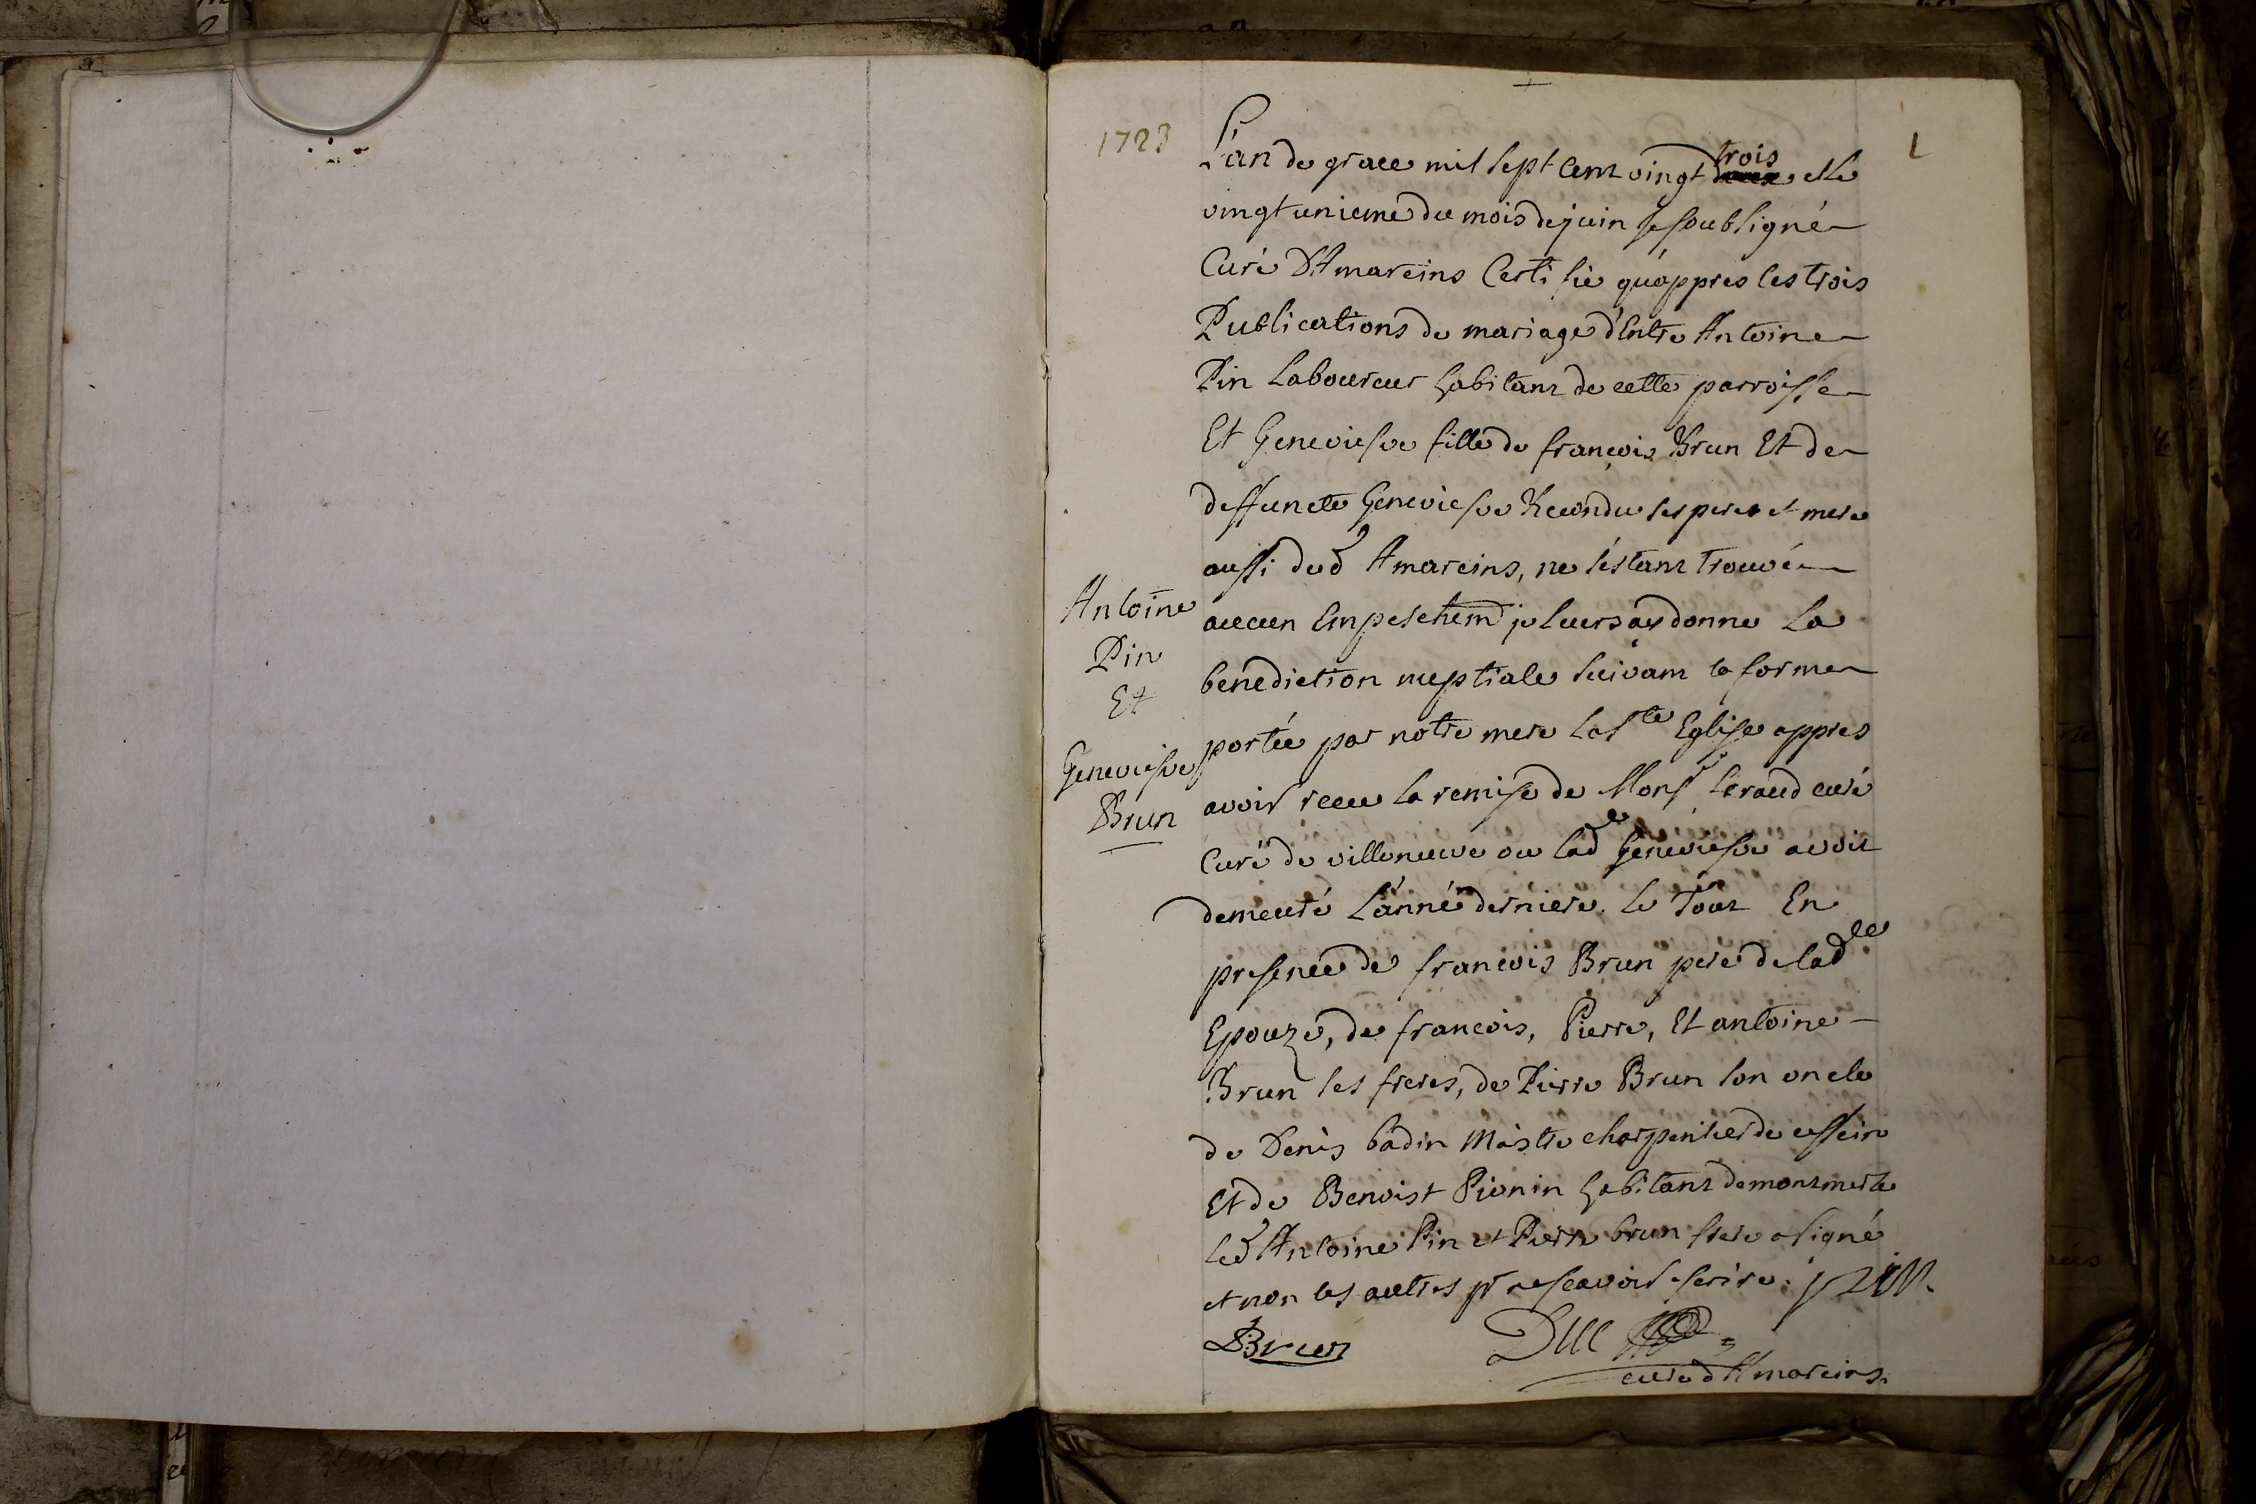 1723
1
L'an de grace mil sept cent vingt trois et le
vingt unieme du mois de juin je soubsigné
Curé D'Amareins Certifie qu'appres les trois
Publications du mariage d'Entre Antoine
Pin Laboureur habitant de cette parroisse
Et Geneviesve fille de françois Brun Et de
deffuncte Geneviesve ses peres et mere
aussi dud Amareins, ne s'estant trouvé
aucun Empeschem̃ je leurs ay donne La
benediction nuptiale suivant la forme
portée par notre mere la Ste Eglise appres
avoir receu la remise de Monsr curé
Curé de villeneuve ou lade Geneviesve avoit
demeuré L'année derniere. le Tout En
presence de francois Brun pere de lad
Epouze, de francois, Pierre, Et antoine
Brun ses freres, de Pierre Brun son oncle
de Denis badin Maistre charpentier de
Et de Benoist Pionin habitant de montmerle
led Antoine Pin et Pierre brun frere a signé
et non les autres pr ne scavoir escrire. pin.
Brun
Duc
curé d'Amareins.
Antoine
Pin
Et
Geneviesve
Brun